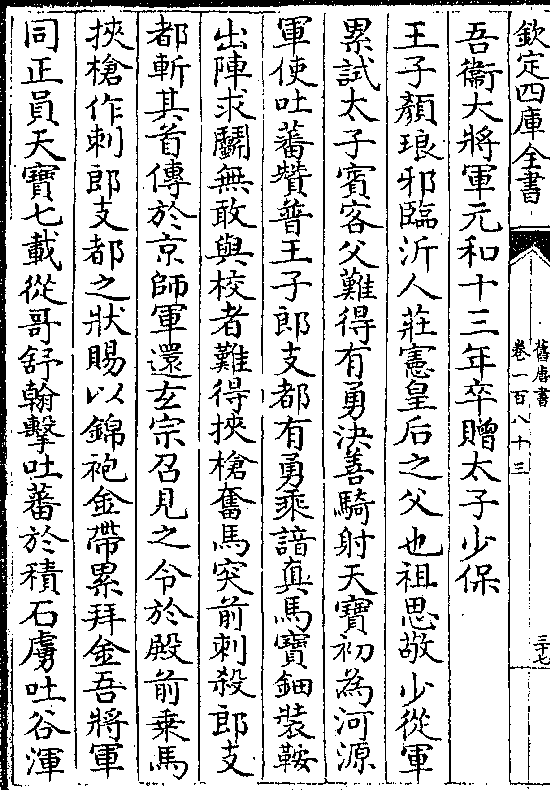 欽定四庫全書
舊唐書
卷一百八十三
三十七
吾衞大將軍元和十三年卒贈太子少保
王子顏琅邪臨沂人莊憲皇后之父也祖思敬少從軍
累試太子賓客父難得有勇決善騎射天寶初為河源
軍使吐蕃贊普王子郎支都有勇乘諳真馬寶鈿裝鞍
出陣求鬭無敢與校者難得挾槍奮馬突前刺殺郎支
都斬其首傳於京師軍還玄宗召見之令於殿前乘馬
挾槍作刺郎支都之狀賜以錦袍金帶累拜金吾將軍
同正員天寶七載從哥舒翰擊吐蕃於積石虜吐谷渾